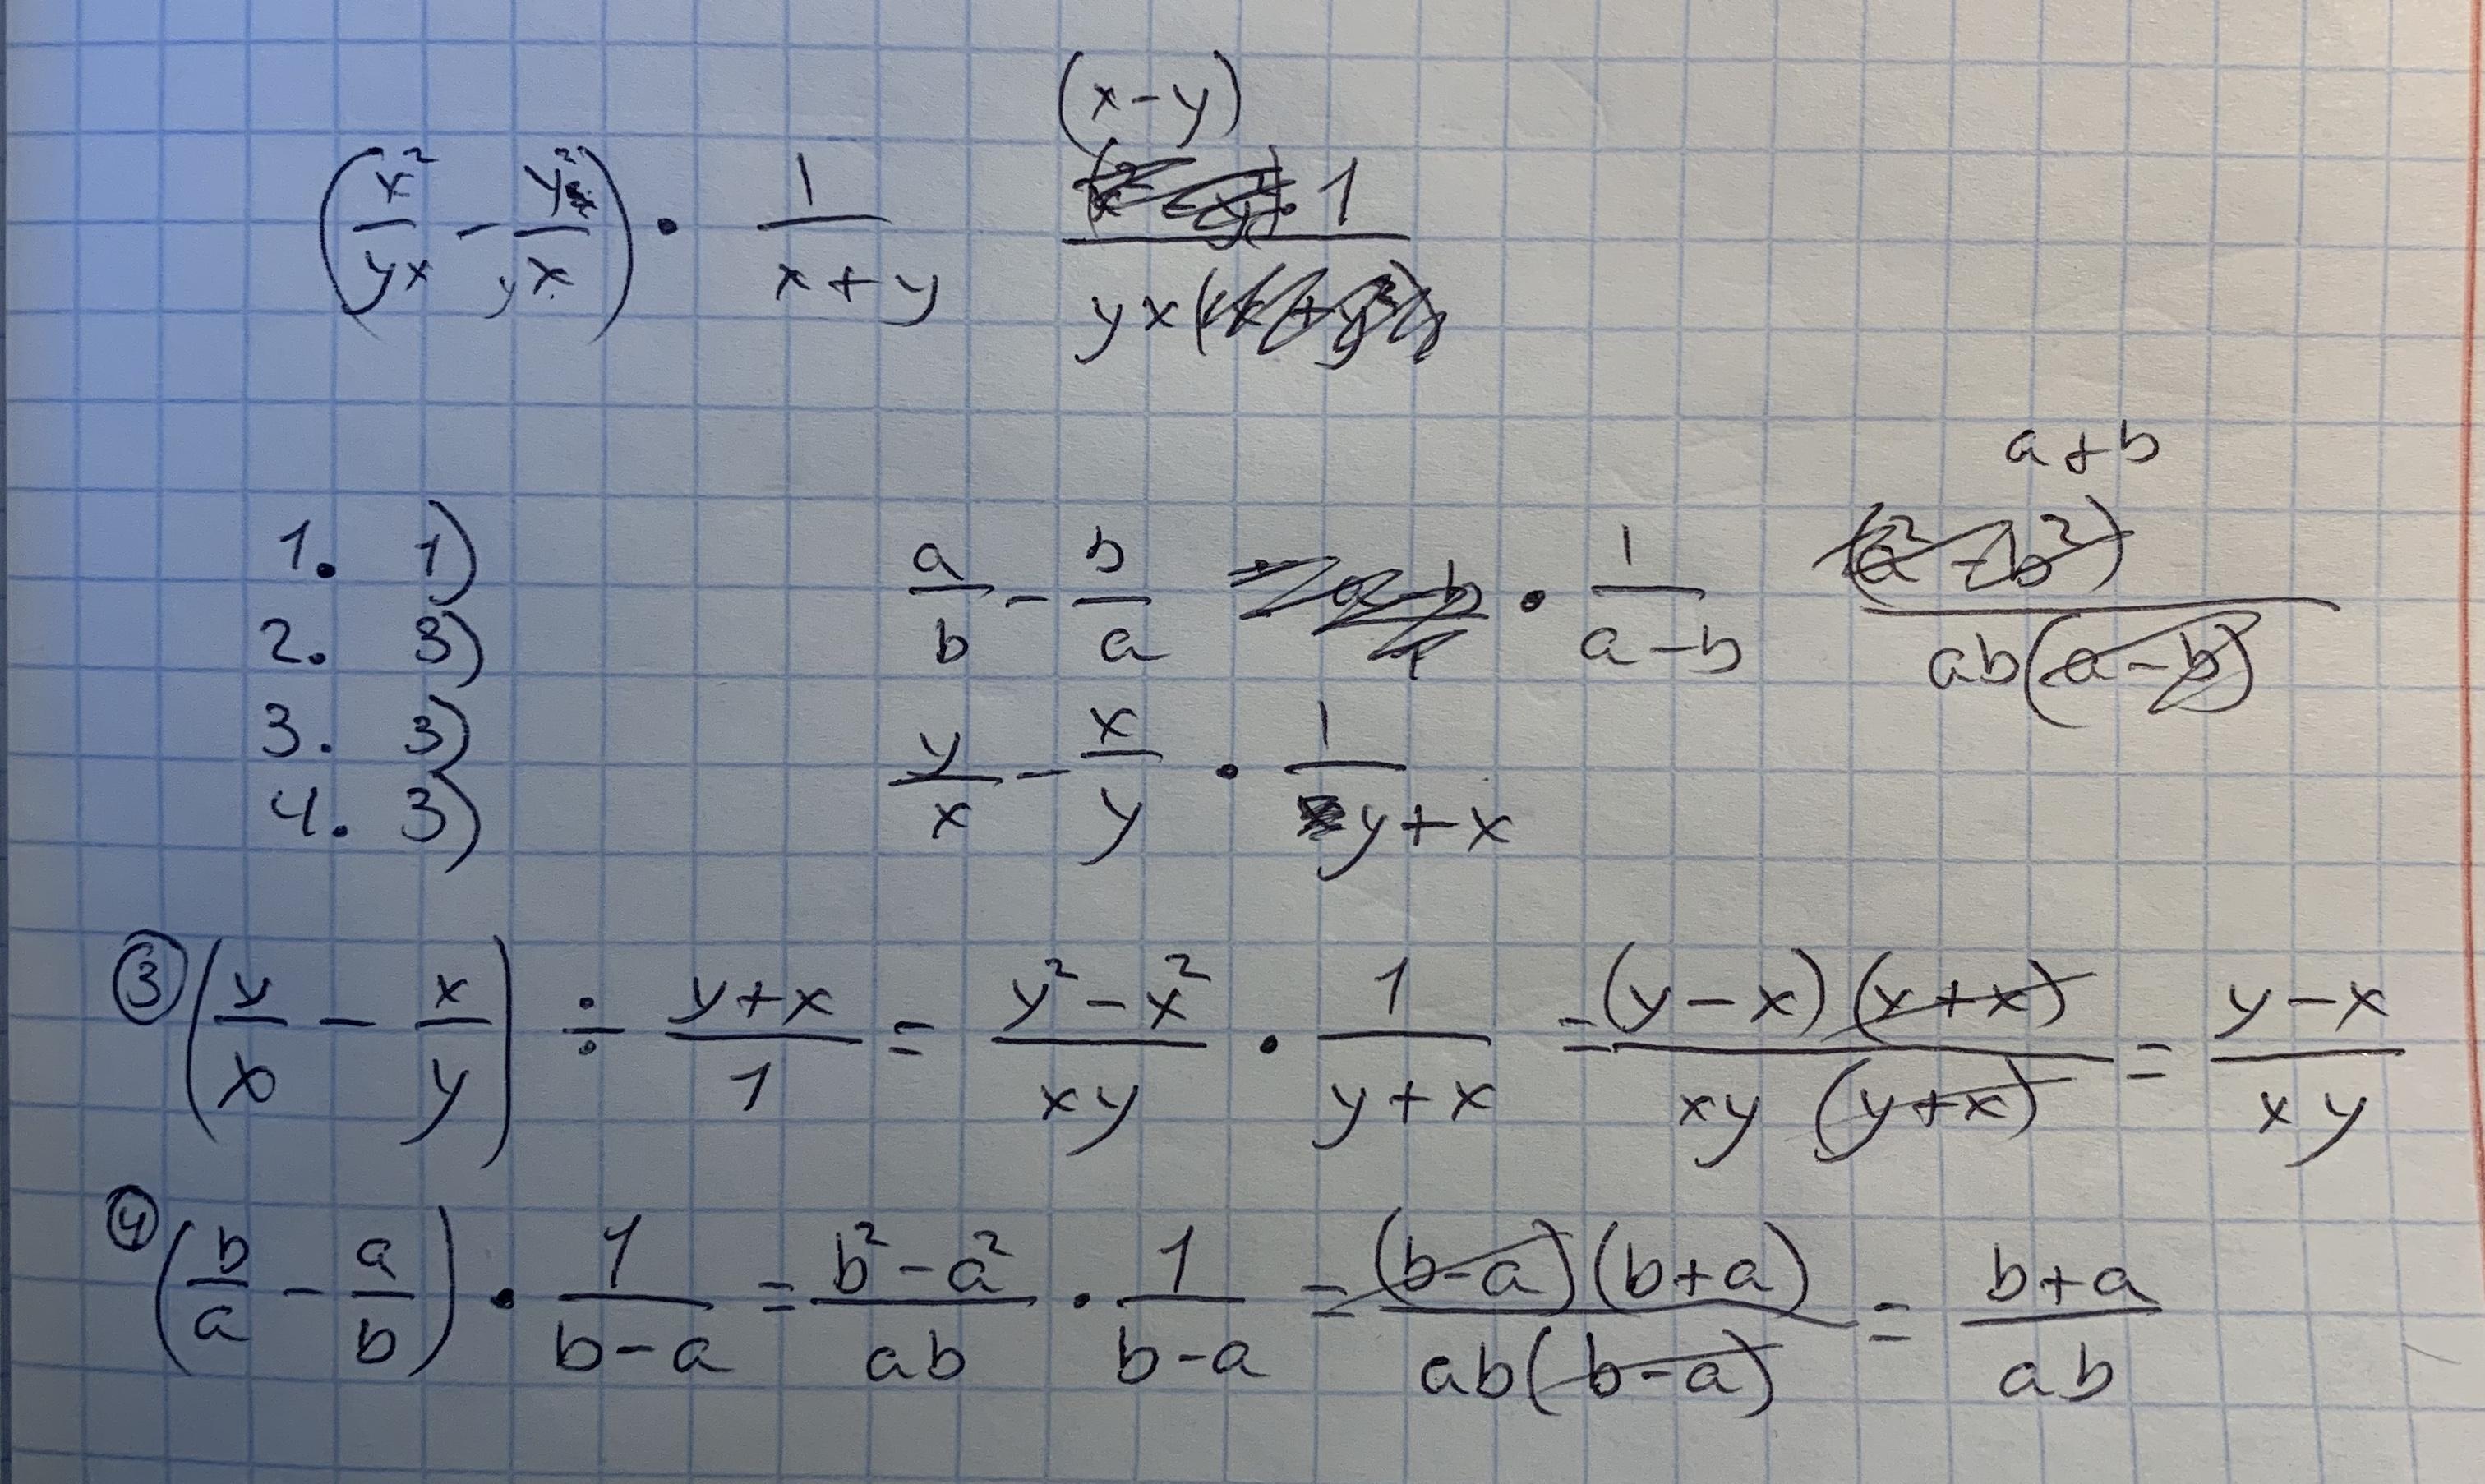 (x²/yx - y²/yx) · 1/(x+y)   (x-y) · 1 / yx
1. 1)
2. 3)
3. 3)
4. 3)
a/b - b/a · 1/(a-b)   a+b (a²-b²) / ab(a-b)
y/x - x/y · 1/(y+x)
③ (y/x - x/y) ÷ (y+x)/1 = (y²-x²)/xy · 1/(y+x) = (y-x)(y+x) / xy(y+x) = (y-x)/xy
④ (b/a - a/b) · 1/(b-a) = (b²-a²)/ab · 1/(b-a) = (b-a)(b+a) / ab(b-a) = (b+a)/ab